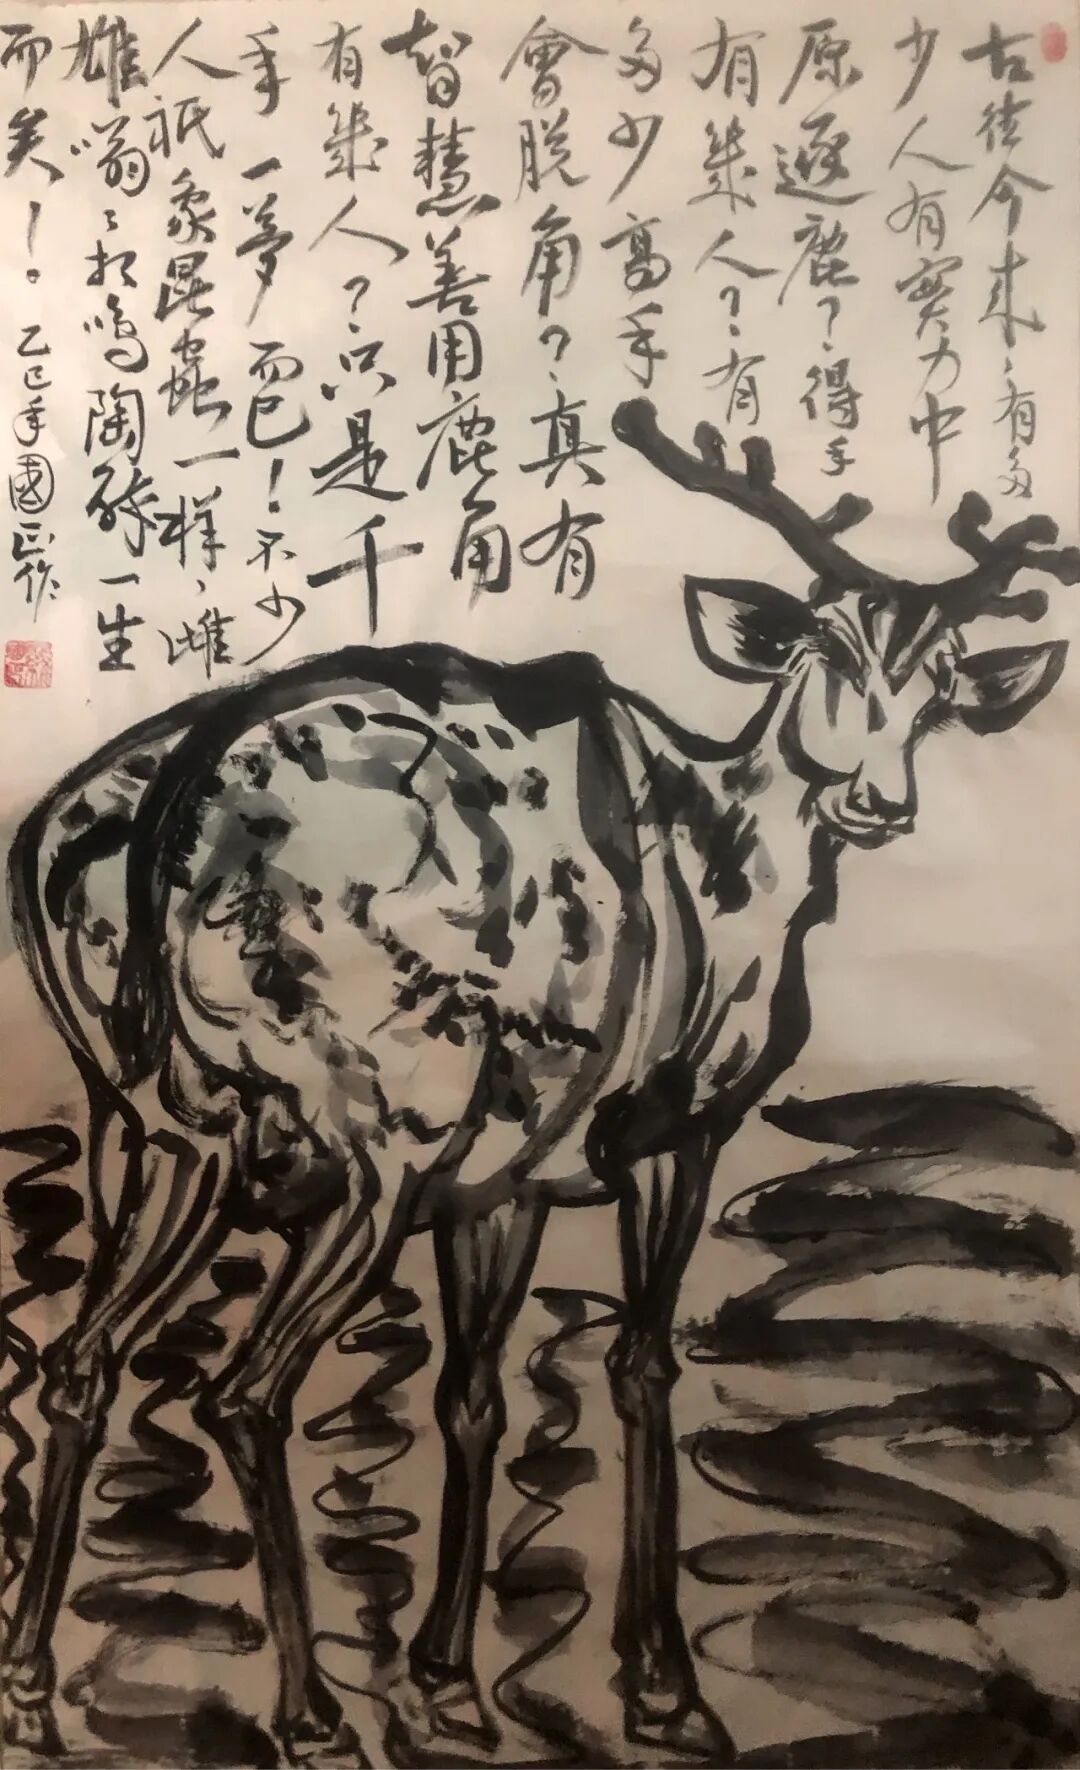 古往今来、有多
少人有實力中
原逐鹿？得手
有幾人？有
多少高手
會脱角？真有
智慧善用鹿角
有幾人？只是千
年一夢而已！不少
人祇象昆蟲一樣、雌
雄嗡嗡相鳴陶醉一生
而矣！。
乙巳年國正作